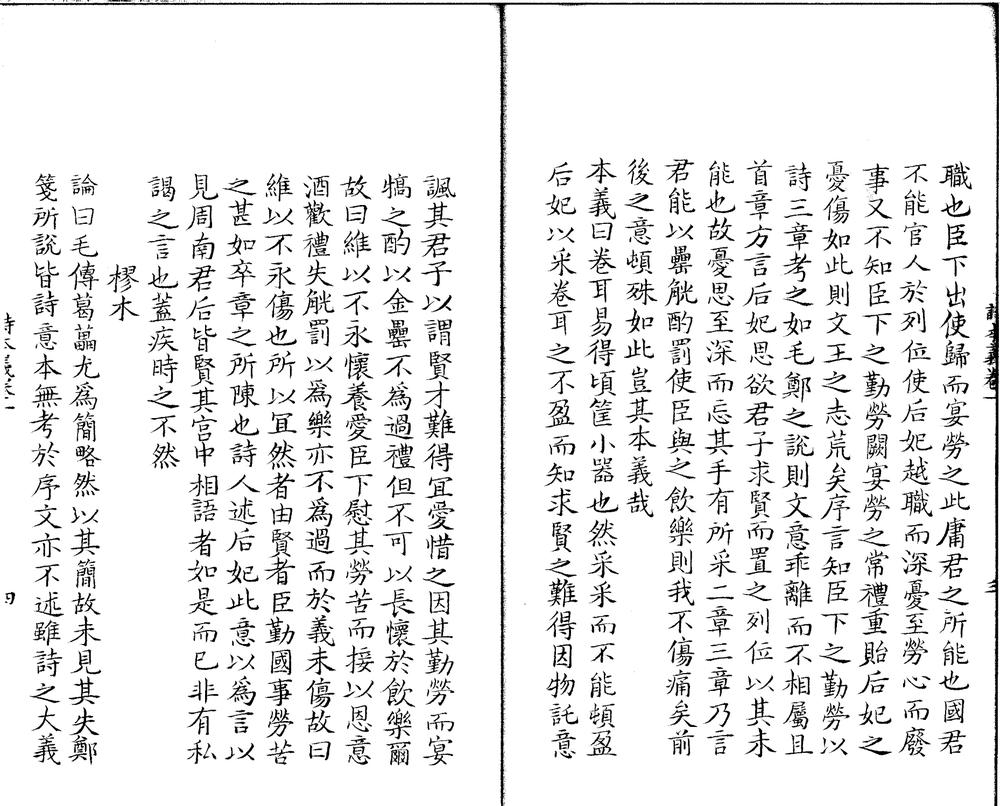 職也臣下出使歸而宴勞之此庸君之所能也國君
不能官人於列位使后妃越職而深憂至勞心而廢
事又不知臣下之勤勞闕宴勞之常禮重貽后妃之
憂傷如此則文王之志荒矣序言知臣下之勤勞以
詩三章考之如毛鄭之說則文意乖離而不相屬且
首章方言后妃思欲君子求賢而置之列位以其未
能也故憂思至深而忘其手有所采二章三章乃言
君能以罍觥酌罰使臣與之飲樂則我不傷痛矣前
後之意頓殊如此豈其本義哉
本義曰卷耳易得頃筐小器也然采采而不能頓盈
后妃以采卷耳之不盈而知求賢之難得因物託意
諷其君子以謂賢才難得宜愛惜之因其勤勞而宴
犒之酌以金罍不為過禮但不可以長懷於飲樂爾
故曰維以不永懷養愛臣下慰其勞苦而接以恩意
酒歡禮失觥罰以為樂亦不為過而於義未傷故曰
維以不永傷也所以宜然者由賢者臣勤國事勞苦
之甚如卒章之所陳也詩人述后妃此意以為言以
見周南君后皆賢其宮中相語者如是而已非有私
謁之言也蓋疾時之不然
樛木
論曰毛傳葛藟尤為簡略然以其簡故未見其失鄭
箋所說皆詩意本無考於序文亦不述雖詩之大義